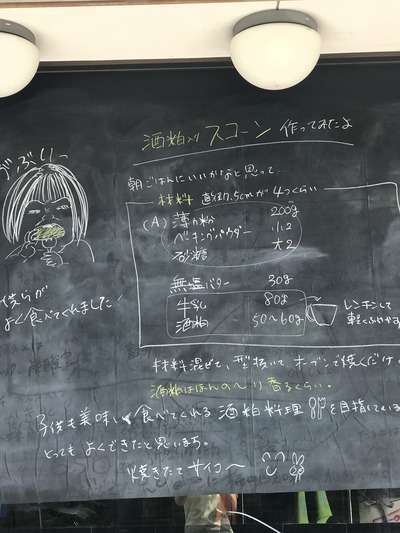 酒粕入り スコーン 作ってみたよ
がぶりっ
朝ごはんにいいかなと思って...
材料 直径7.5cmが4つくらい
(A) 薄力粉 200g
ベーキングパウダー 小2
砂糖 大2
無塩バター 30g
牛乳 80g
酒粕 50〜60g
レンチンして
軽くふやかす
よく食べてくれました!
材料混ぜて、型抜いて オーブンで焼くだけ。
酒粕はほんの〜り香るくらい。
子供も美味しく食べてくれる 酒粕料理 を目指している
とっても よくできたと思いまち。
焼きたて サイコ〜